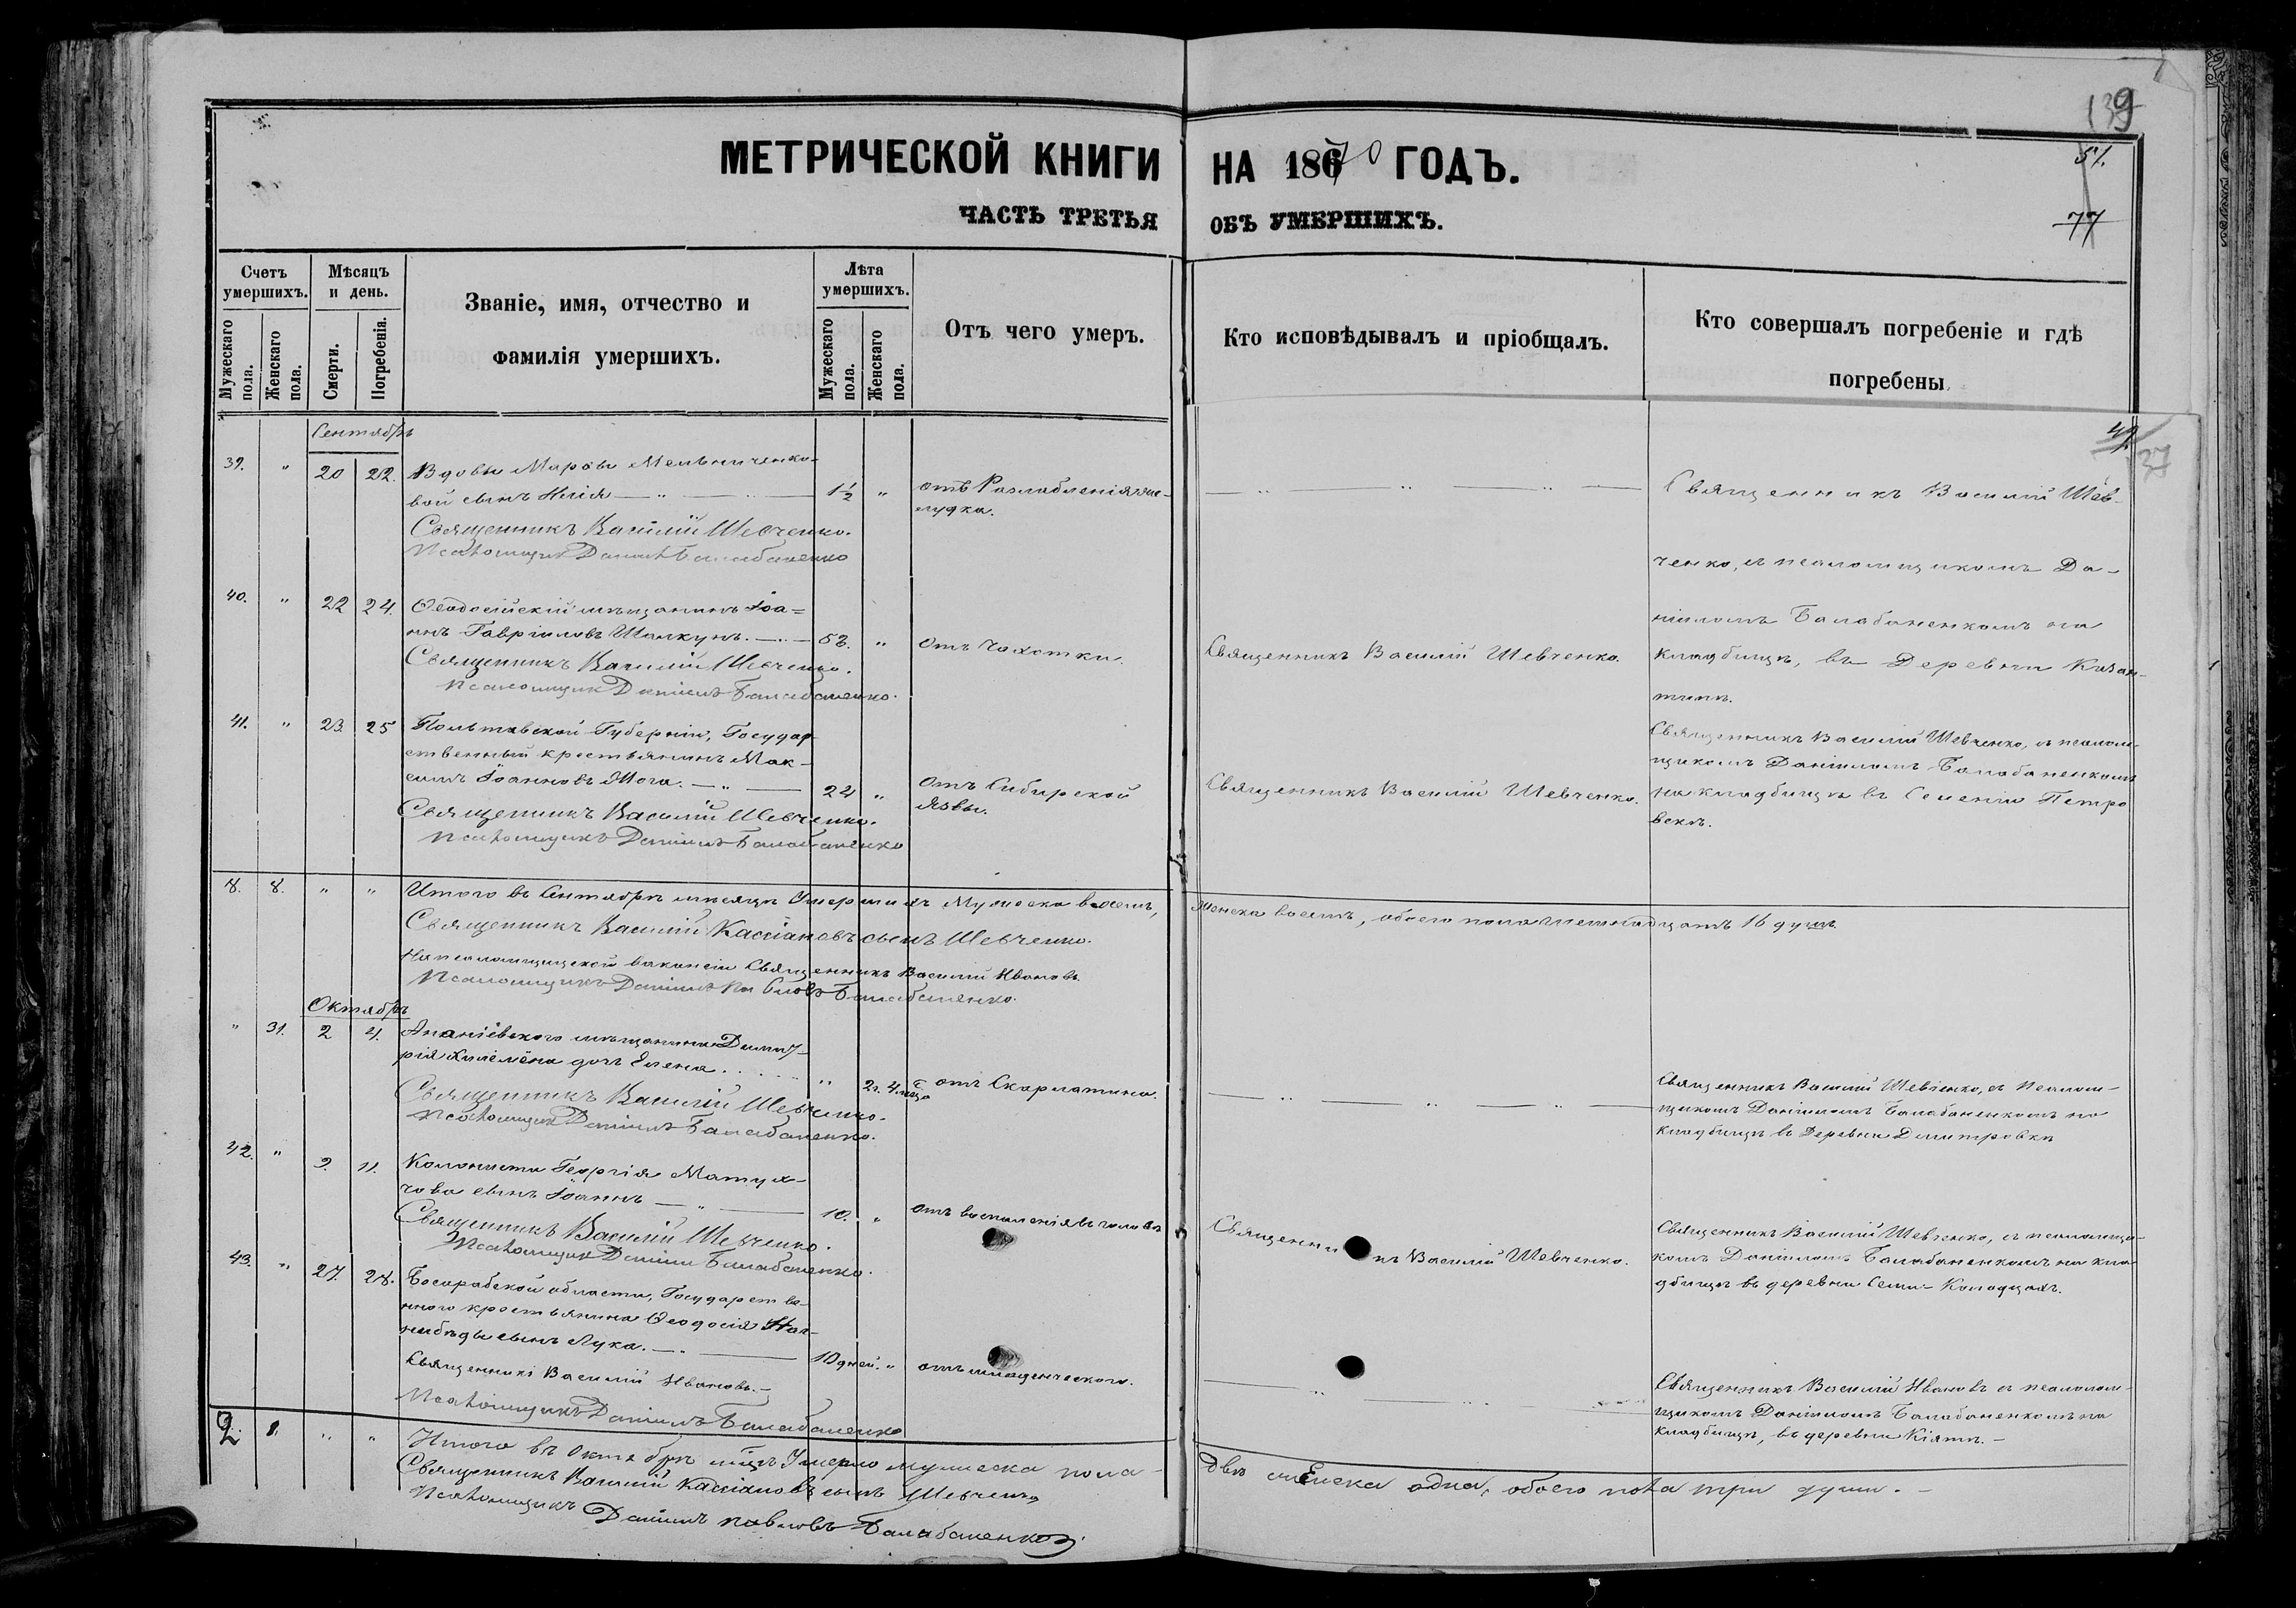 139
МЕТРИЧЕСКОЙ КНИГИ НА 1870 ГОДЪ.
51.
77
ЧАСТЬ ТРЕТЬЯ ОБЪ УМЕРШИХЪ.
Счетъ умершихъ.
Мужескаго пола.
Женскаго пола.
Мѣсяцъ и день.
Смерти.
Погребенія.
Званіе, имя, отчество и
фамилія умершихъ.
Лѣта умершихъ.
Мужескаго пола.
Женскаго пола.
Отъ чего умеръ.
Кто исповѣдывалъ и пріобщалъ.
Кто совершалъ погребеніе и гдѣ
погребены.
49
137
Сентябрь
39. " 20 22. Вдовы Марѳы Мельниченко-
вой сынъ Илія 1½ "
отъ Разслабленія же-
лудка.
Священникъ Василій Шев-
ченко, съ псаломщикомъ Да-
ніиломъ Балабаненкомъ на
кладбищѣ, въ Деревни Казан-
типъ.
Священникъ Василій Шевченко.
Псаломщикъ Даніилъ Балабаненко
40. " 22 24. Ѳеодосійскій мѣщанинъ Іоа=
ннъ Гавріиловъ 53. "
отъ Чахотки.
Священникъ Василій Шевченко.
Священникъ Василій Шевченко.
Псаломщикъ Даніилъ Балабаненко.
41. " 23 25 Полтавской Губерніи, Государ-
ственный крестьянинъ Мак-
симъ Іоанновъ 24 "
отъ Сибирской
Язвы.
Священникъ Василій Шевченко.
Священникъ Василій Шевченко, съ псалом-
щикомъ Даніиломъ Балабаненкомъ
на кладбищѣ въ Селеніи Петро
вскѣ.
Священникъ Василій Шевченко.
Псаломщикъ Даніилъ Балабаненко
8. 8. " " Итого въ Сентябрѣ мѣсяцѣ Умершихъ Мужеска восемь,
женска восемь, обоего пола шестнадцать 16 душъ.
Священникъ Василій Кассіановъ сынъ Шевченко.
На псаломщицкой вакансіи Священникъ Василій Ивановъ.
Псаломщикъ Даніилъ Балабаненко.
Октябрь
" 31. 2 4. Ананіевского мѣщанина Димит-
рія дочь Елена " 2г. 4 мѣс
отъ Скарлатины.
Священникъ Василій Шевченко, съ Псалом-
щикомъ Даніиломъ Балабаненкомъ на
кладбищѣ въ Деревнѣ Димитровки
Священникъ Василій Шевченко.
Псаломщикъ Даніилъ Балабаненко.
42. " 9. 11. Колониста Георгія
сынъ Іоаннъ 10. "
отъ воспаленія въ головѣ
Священникъ Василій Шевченко.
Священникъ Василій Шевченко, съ псаломщи-
комъ Даніиломъ Балабаненкомъ на кла-
дбищѣ въ деревни Семи-Колодцахъ.
Священникъ Василій Шевченко.
Псаломщикъ Даніилъ Балабаненко.
43. " 27. 28. Бесарабской области, Государстве-
нного крестьянина Ѳеодосія
сынъ Лука. 10 дней. "
отъ младенческого.
Священникъ Василій Ивановъ съ псалом-
щикомъ Даніиломъ Балабаненкомъ на
кладбищѣ, въ деревни Кіятъ.
Священникъ Василій Ивановъ.
Псаломщикъ Даніилъ Балабаненко
2. 1. " " Итого въ Октябрѣ мѣсяцѣ Умерло мужеска пола
два женска одна, обоего пола три души.
Священникъ Василій Кассіановъ сынъ Шевченко
Псаломщикъ Даніилъ Павловъ Балабаненко.